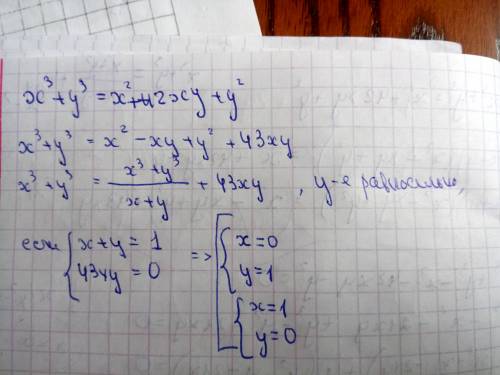 x³+y³ = x²+42xy+y²
x³+y³ = x²-xy+y² +43xy
x³+y³ = (x³+y³)/(x+y) + 43xy , у-е равносильно,
если { x+y = 1 => [ { x=0
43xy = 0 y=1
{ x=1
y=0